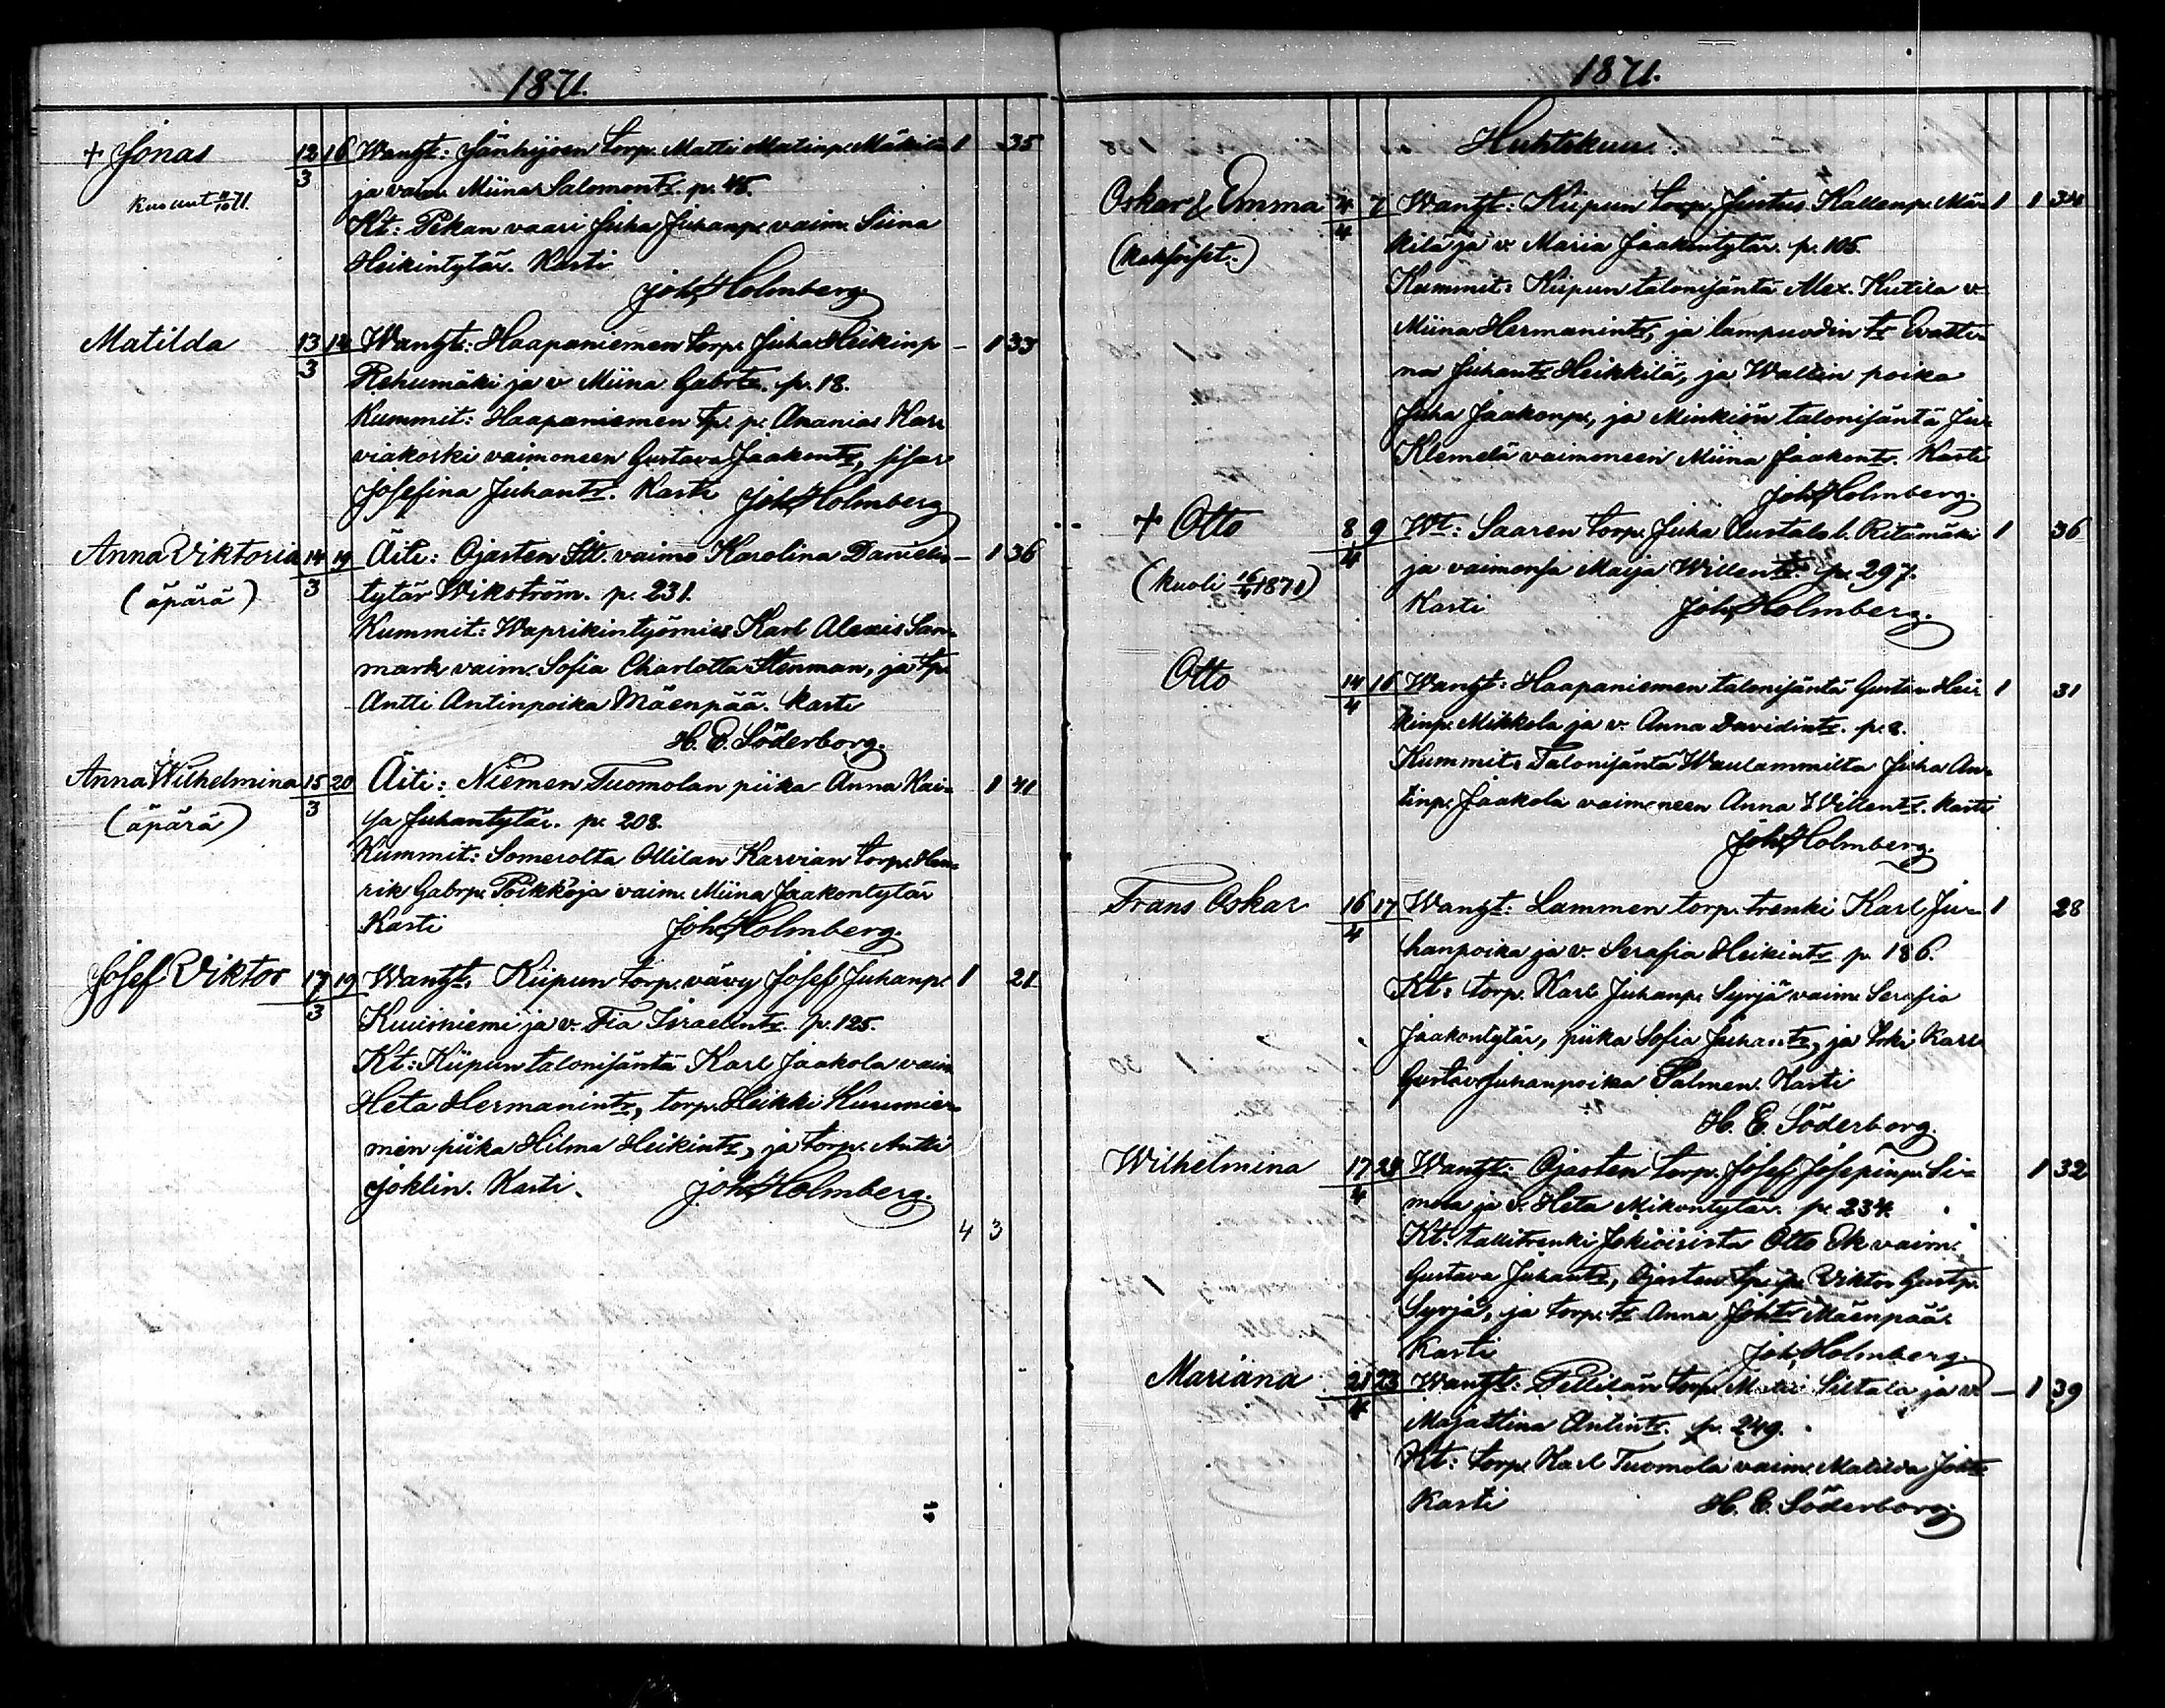 1871.
+ Jonas 12/3 16 Wanht: Jänhijoen torp. Matti Matinp. Mäkilä 1 35
kuollut 71. ja vaim. Miina Salomontr. p. 45.
Kt: Pekan vaari Juha Juhanp. vaim. Siina
Heikintytär. Kasti
Joh. Holmberg.
Matilda 13/3 14 Wanht: Haapaniemen torp. Juha Heikinp – 1 33
Rehumäki ja v. Miina Gabrtr. p. 18.
Kummit: Haapaniemen tp. p. Ananias Kar-
viakoski vaimoneen Gustava Jaakontr, sisar
Josefina Juhantr. Kasti Joh. Holmberg
Anna Viktoria 14/3 19 Äiti: Ojasten Itt. vaimo Karolina Danielin – 1 36
(äpärä) tytär Wikström. p. 231.
Kummit: Waprikintyömies Karl Alexis San-
mark vaim. Sofia Charlotta Stenman, ja tp.
Antti Antinpoika Mäenpää. Kasti
H. E. Söderborg.
Anna Wilhelmina 15/3 20 Äiti: Niemen Tuomolan piika Anna Kai- 1 41
(äpärä) sa Juhantytär. p. 208.
Kummit: Somerolta Ollilan Karvian torp. Hen-
rik Gabrp. Poikkoja vaim. Miina Jaakontytär
Kasti Joh. Holmberg.
Josef Viktor 17/3 19 Wanht. Kiipun torp. vävy Josef Juhanp. 1 21
Kuusniemi ja v. Fia Israelintr. p. 125.
Kt: Kiipun talonisäntä Karl Jaakola vaim
Heta Hermanintr, torp. Heikki Kuusnie-
men piika Hilma Heikintr, ja torp. Antti
Joklin. Kasti. Joh. Holmberg.
4 3
1871.
Huhtikuu.
Oskar & Emma 4/4 7 Wanht: Kiipun torp. Justus Kallenp. Mä- 1 1 34
(kaksoiset.) kilä ja v. Maria Jaakontytär. p. 105.
Kummit: Kiipun talonisäntä Alex. Kutila v.
Miina Hermanintr, ja lampuodin tr Evasti-
na Juhantr Heikkilä, ja Wallin poika
Juha Jaakonp., ja Minkiön talonisäntä Ju.
Klemelä vaimoneen Miina Jaakontr. Kasti
Joh. Holmberg.
+ Otto 8/4 9 Wt: Saaren torp. Juha Kustaal. Ritamäki 1 36
(kuoli 16/4 1871) ja vaimonsa Maija Willentr. p. 297.
Kasti Joh. Holmberg.
Otto 14/4 16 Wanht: Haapaniemen talonisäntä Gustav Hei- 1 31
kinp. Mikkola ja v. Anna Davidintr. p. 8.
Kummit: Talonisäntä Waulammilta Juha An-
tinp. Jaakola vaimoneen Anna Willentr. Kasti
Joh. Holmberg.
Frans Oskar 16/4 17 Wanht: Lammen torp. trenki Karl Ju- 1 28
hanpoika ja v. Serafia Heikintr p. 186.
Kt: torp. Karl Juhanp. Syrjä vaim. Serafia
Jaakontytär, piika Sofia Juhantr, ja trki Karl
Gustav Juhanpoika Salmen. Kasti
H. E. Söderborg.
Wilhelmina 17/4 23 Wanht: Ojasten torp. Josef Josepinp. Si- 1 32
mola ja v. Heta Mikontytär. p. 234.
Kt: tallitrenki Jokioisista Otto Ek vaim.
Gustava Juhantr, Ojasten tp. p. Viktor Gustp.
Syrjä, ja torp. tr Anna Johtr Mäenpää.
Kasti Joh. Holmberg.
Mariana 21/4 23 Wanht: Pellilän torp. Matti Siltala ja v. – 1 39
Majastina Antintr. p. 249.
Kt: torp. Karl Tuomola vaim. Matilda Johtr
Kasti H. E. Söderborg.